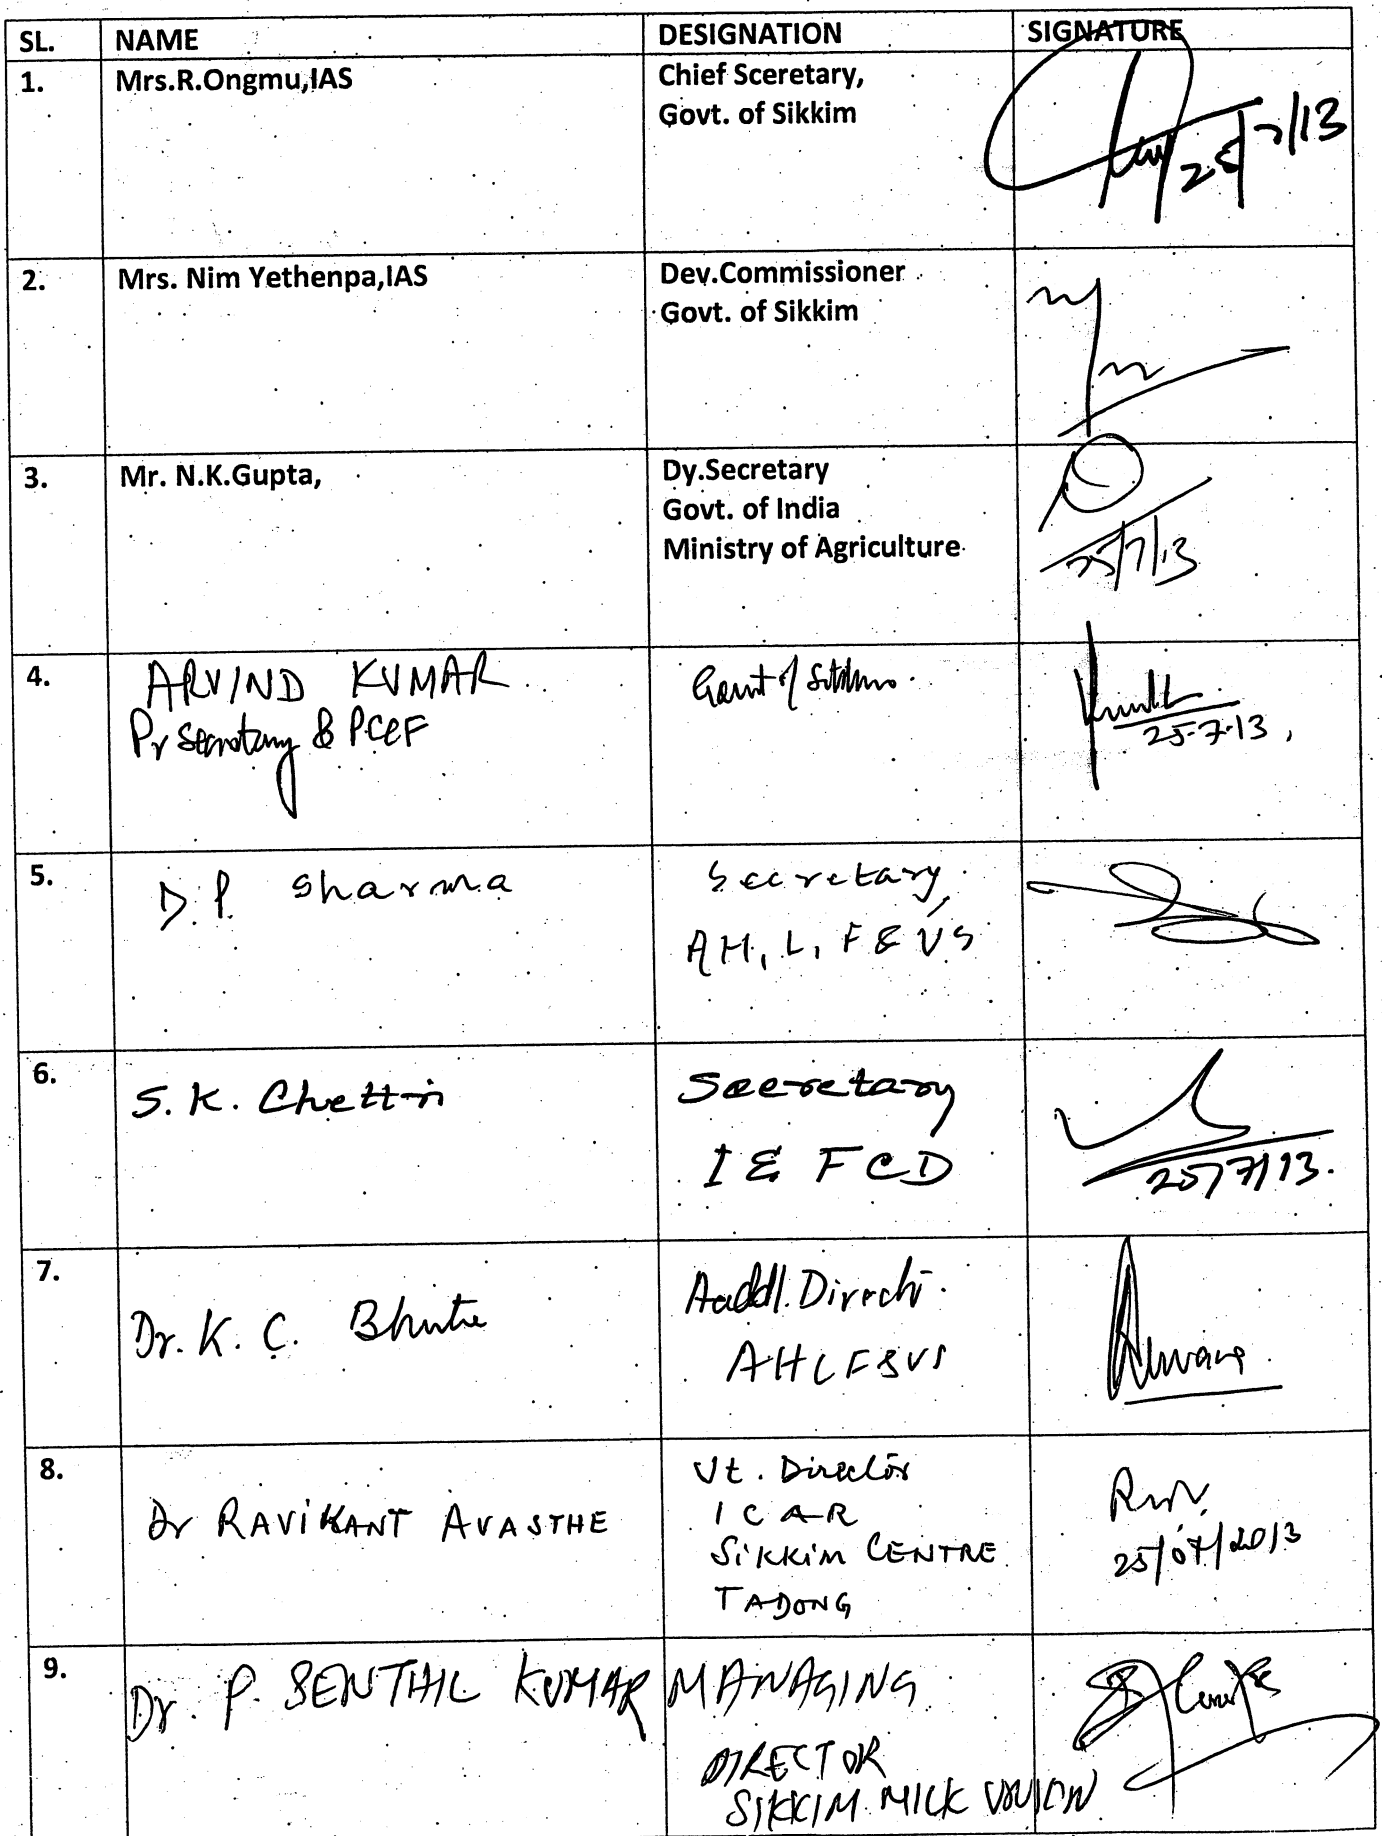 SL. NAME DESIGNATION SIGNATURE
1. Mrs.R.Ongmu,IAS Chief Sceretary,
Govt. of Sikkim
25/7/13
2. Mrs. Nim Yethenpa,IAS Dev.Commissioner
Govt. of Sikkim
3. Mr. N.K.Gupta, Dy.Secretary
Govt. of India
Ministry of Agriculture
25/7/13
4. ARVIND KUMAR Govt of Sikkim.
Pr Secretary & PCCF
25-7-13,
5. D.P. Sharma Secretary,
AH, L, F & VS
6. S. K. Chettri Secretary
I & FCD
25/7/13.
7. Dr. K. C. Bhutia Aaddl. Director
AHLF&VS
8. Dr RAVIKANT AVASTHE Jt. Director
ICAR
SIKKIM CENTRE
TADONG
25/07/2013
9. Dr. P. SENTHIL KUMAR MANAGING
DIRECTOR
SIKKIM MILK UNION